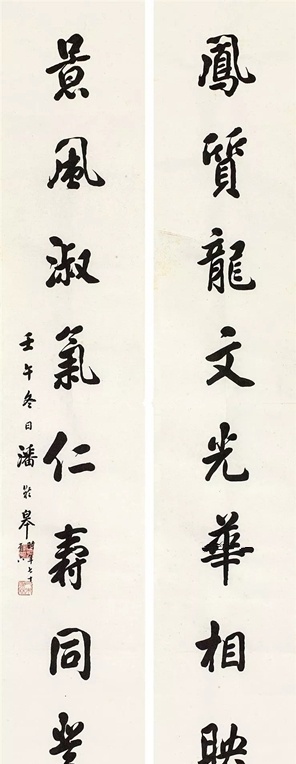 鳳質龍文光華相映
景風淑氣仁壽同登
壬午冬日潘齡皋
時年七十